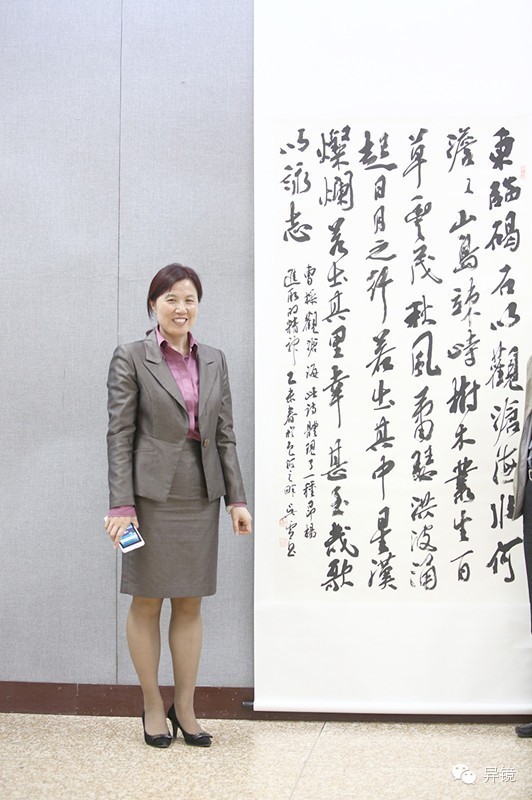 東臨碣石以觀滄海水何
澹々山島竦峙樹木叢生百
草豐茂秋風蕭瑟洪波涌
起日月之行若出其中星漢
燦爛若出其里幸甚至哉歌
以詠志
曹操觀滄海此詩體現了一種昂揚
進取的精神 乙未春於包河之畔
异镜